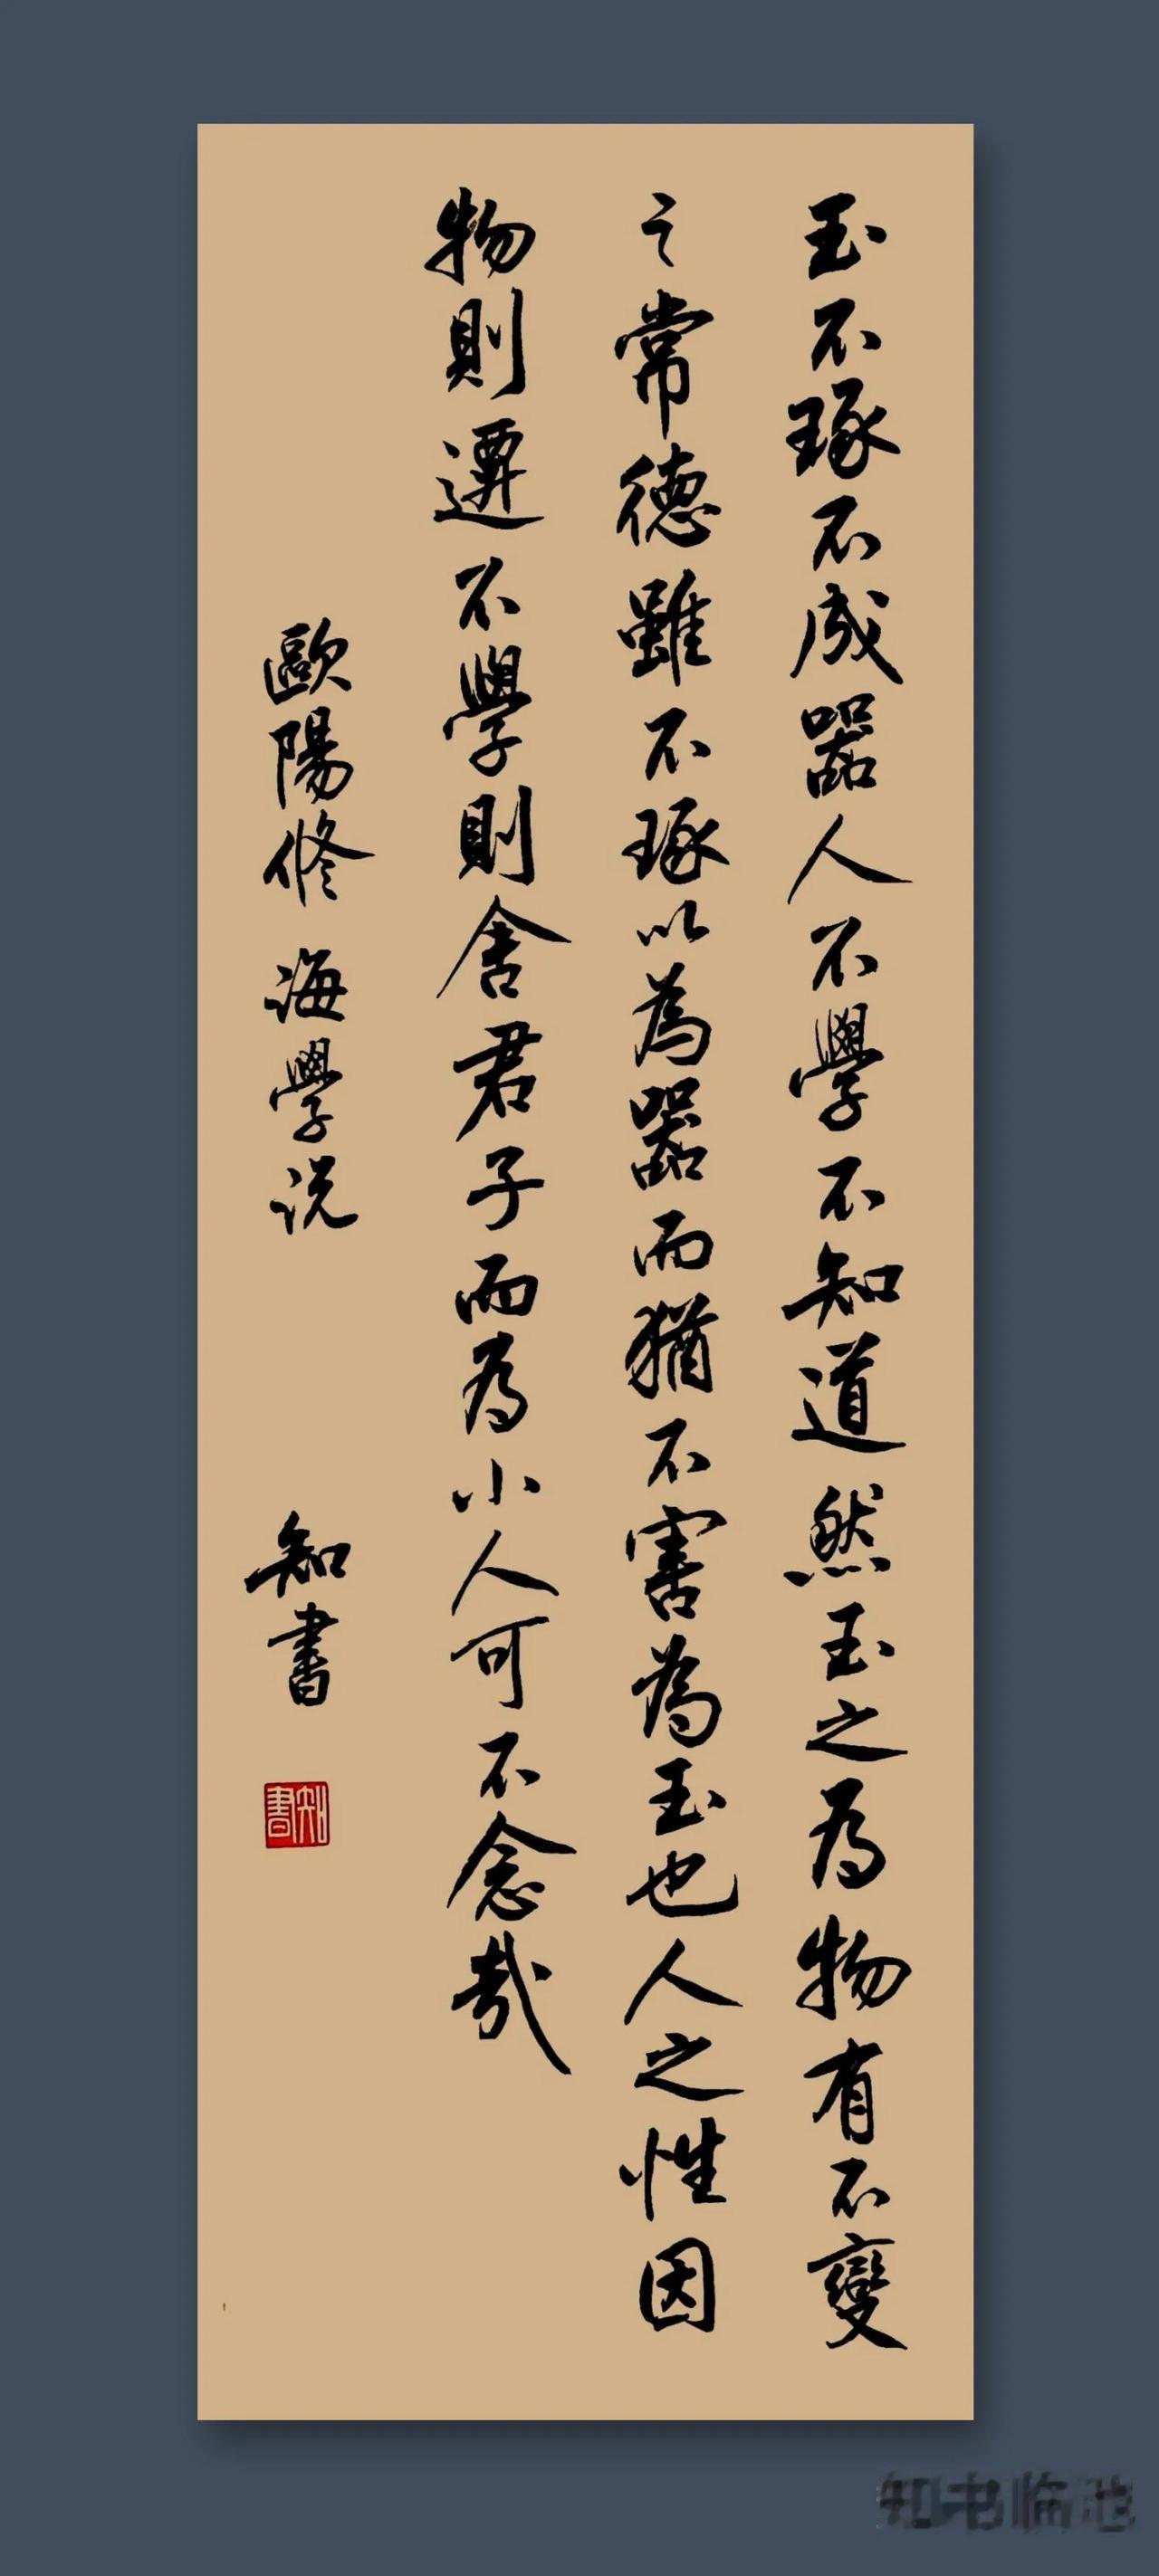 玉不琢不成器人不學不知道然玉之為物有不變
之常德雖不琢以為器而猶不害為玉也人之性因
物則遷不學則舍君子而為小人可不念哉
歐陽修 海學說
知書
知書
知书临池